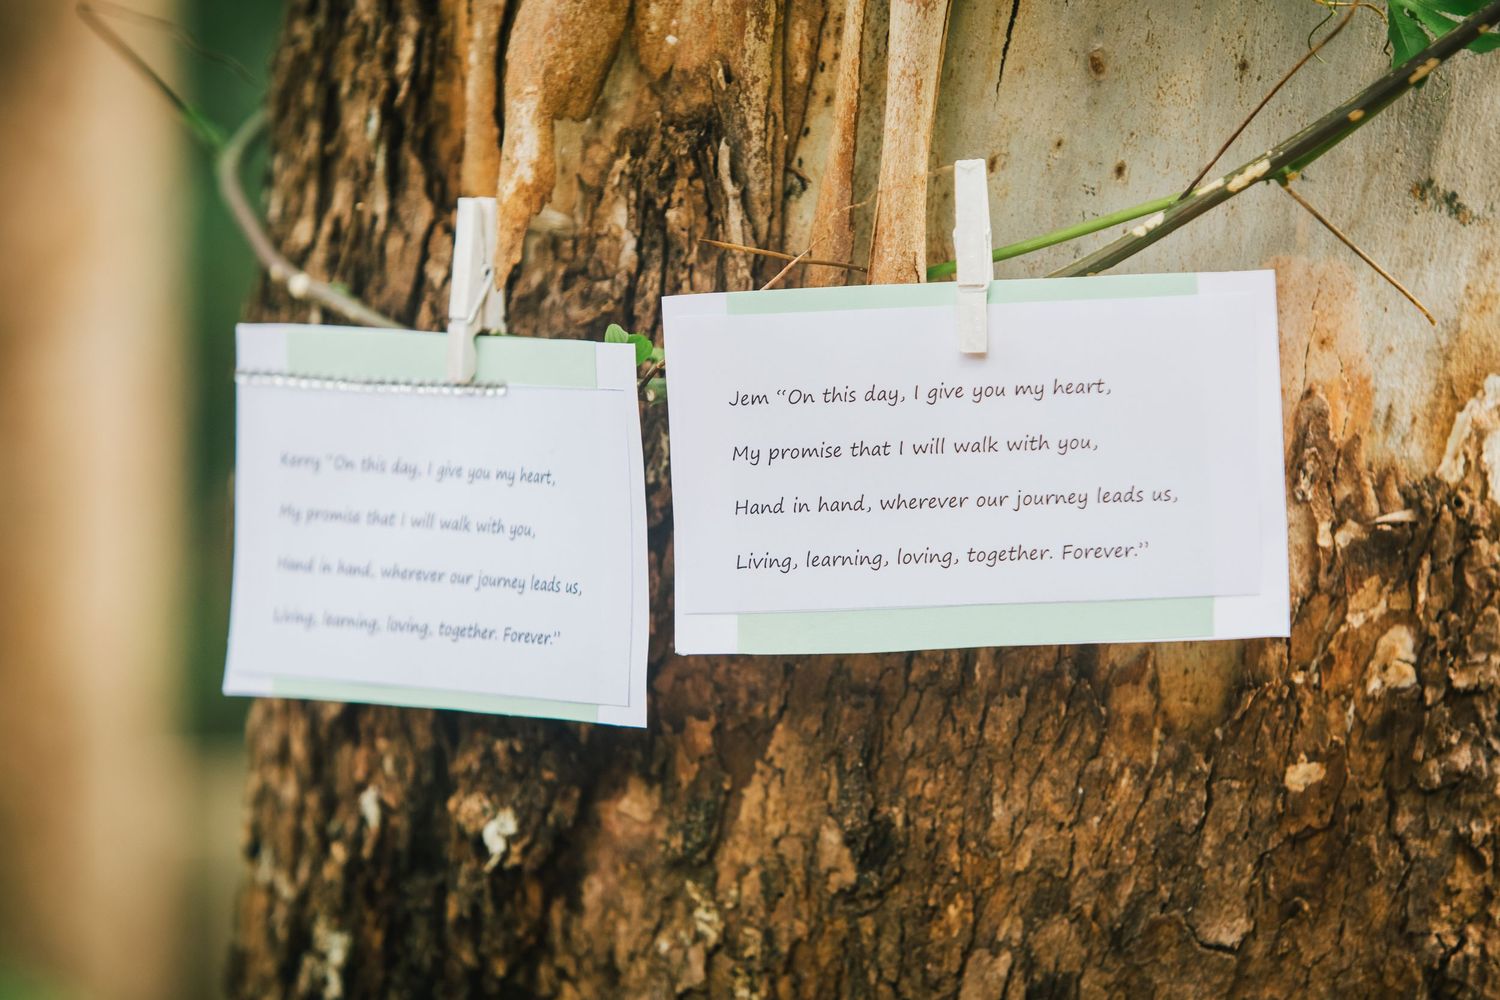 Kerry “On this day, I give you my heart,
My promise that I will walk with you,
Hand in hand, wherever our journey leads us,
Living, learning, loving, together. Forever.”
Jem “On this day, I give you my heart,
My promise that I will walk with you,
Hand in hand, wherever our journey leads us,
Living, learning, loving, together. Forever.”